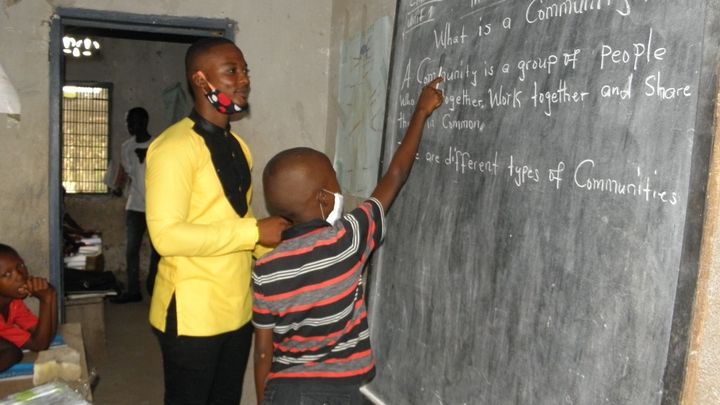 Unit 1
What is a Community
A Community is a group of People
Who together, Work together and Share
in Common.
are different types of Communities